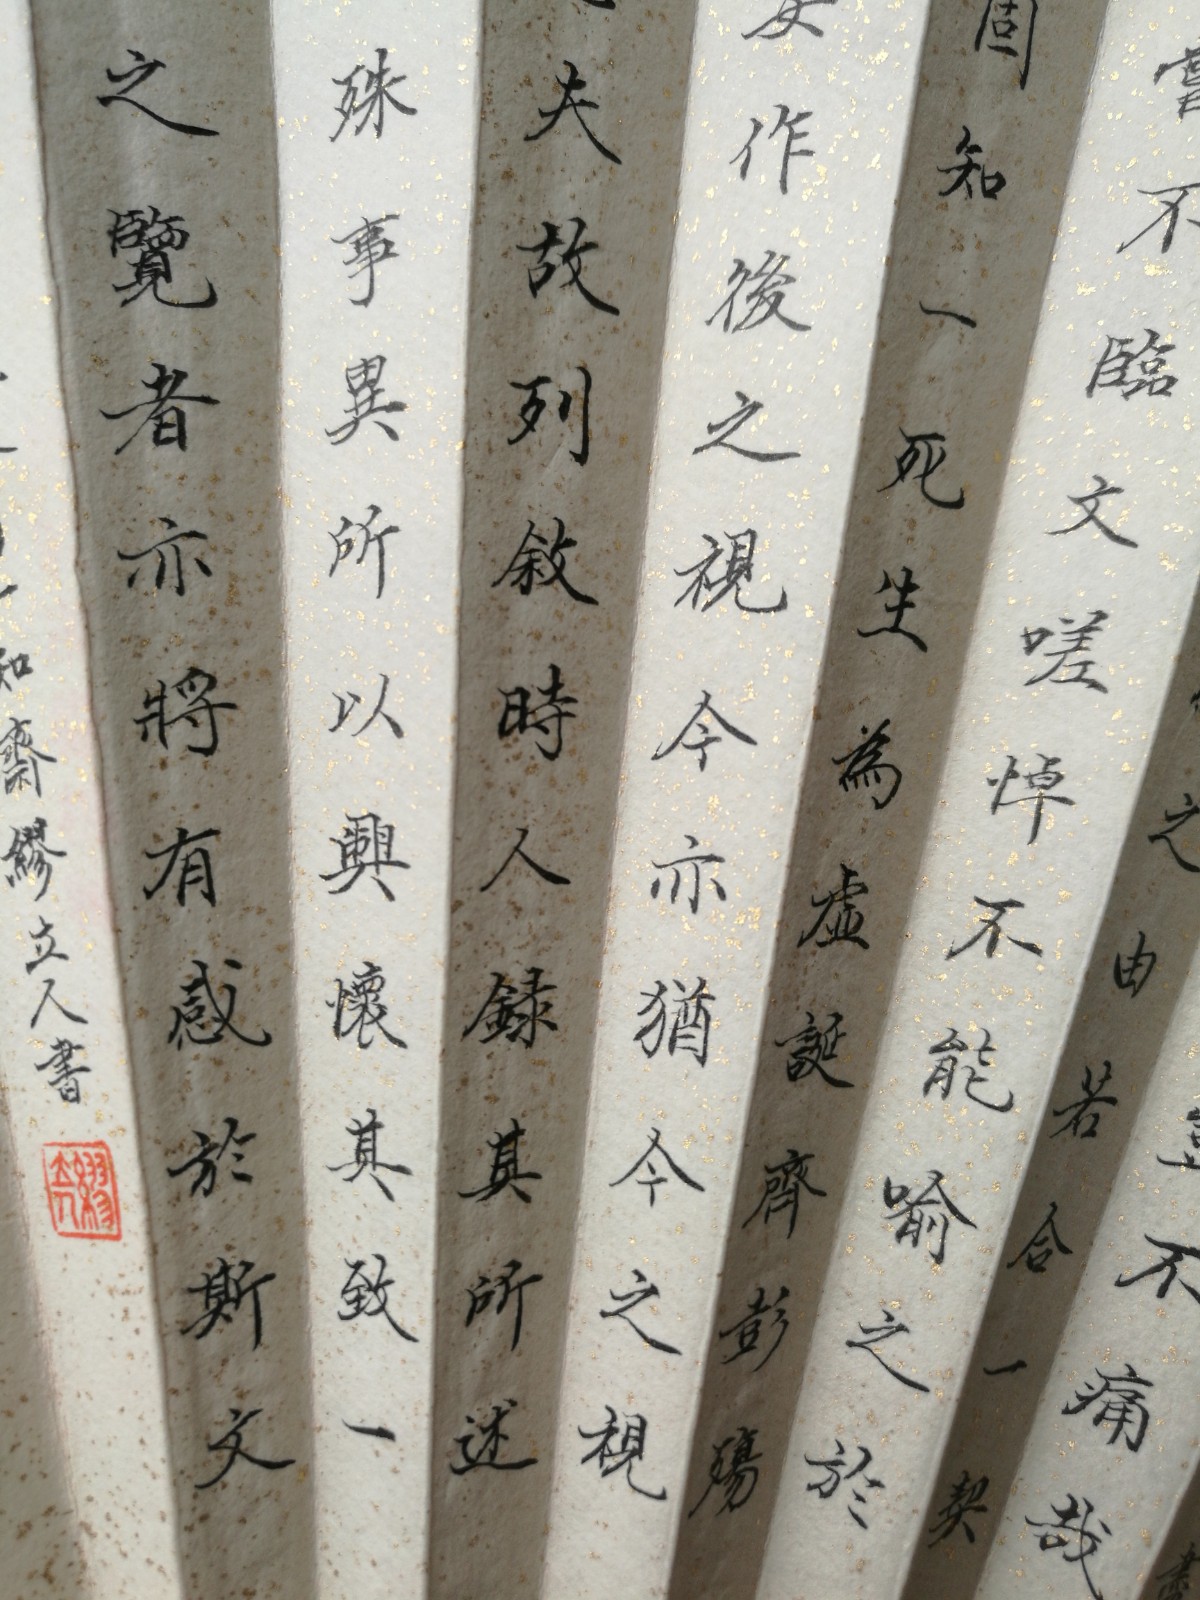 不痛哉
之由若合一契
嘗不臨文嗟悼不能喻之於
固知一死生為虛誕齊彭殤
妄作後之視今亦猶今之視
夫故列敘時人錄其所述
殊事異所以興懷其致一
之覽者亦將有感於斯文
知齋繆立人書